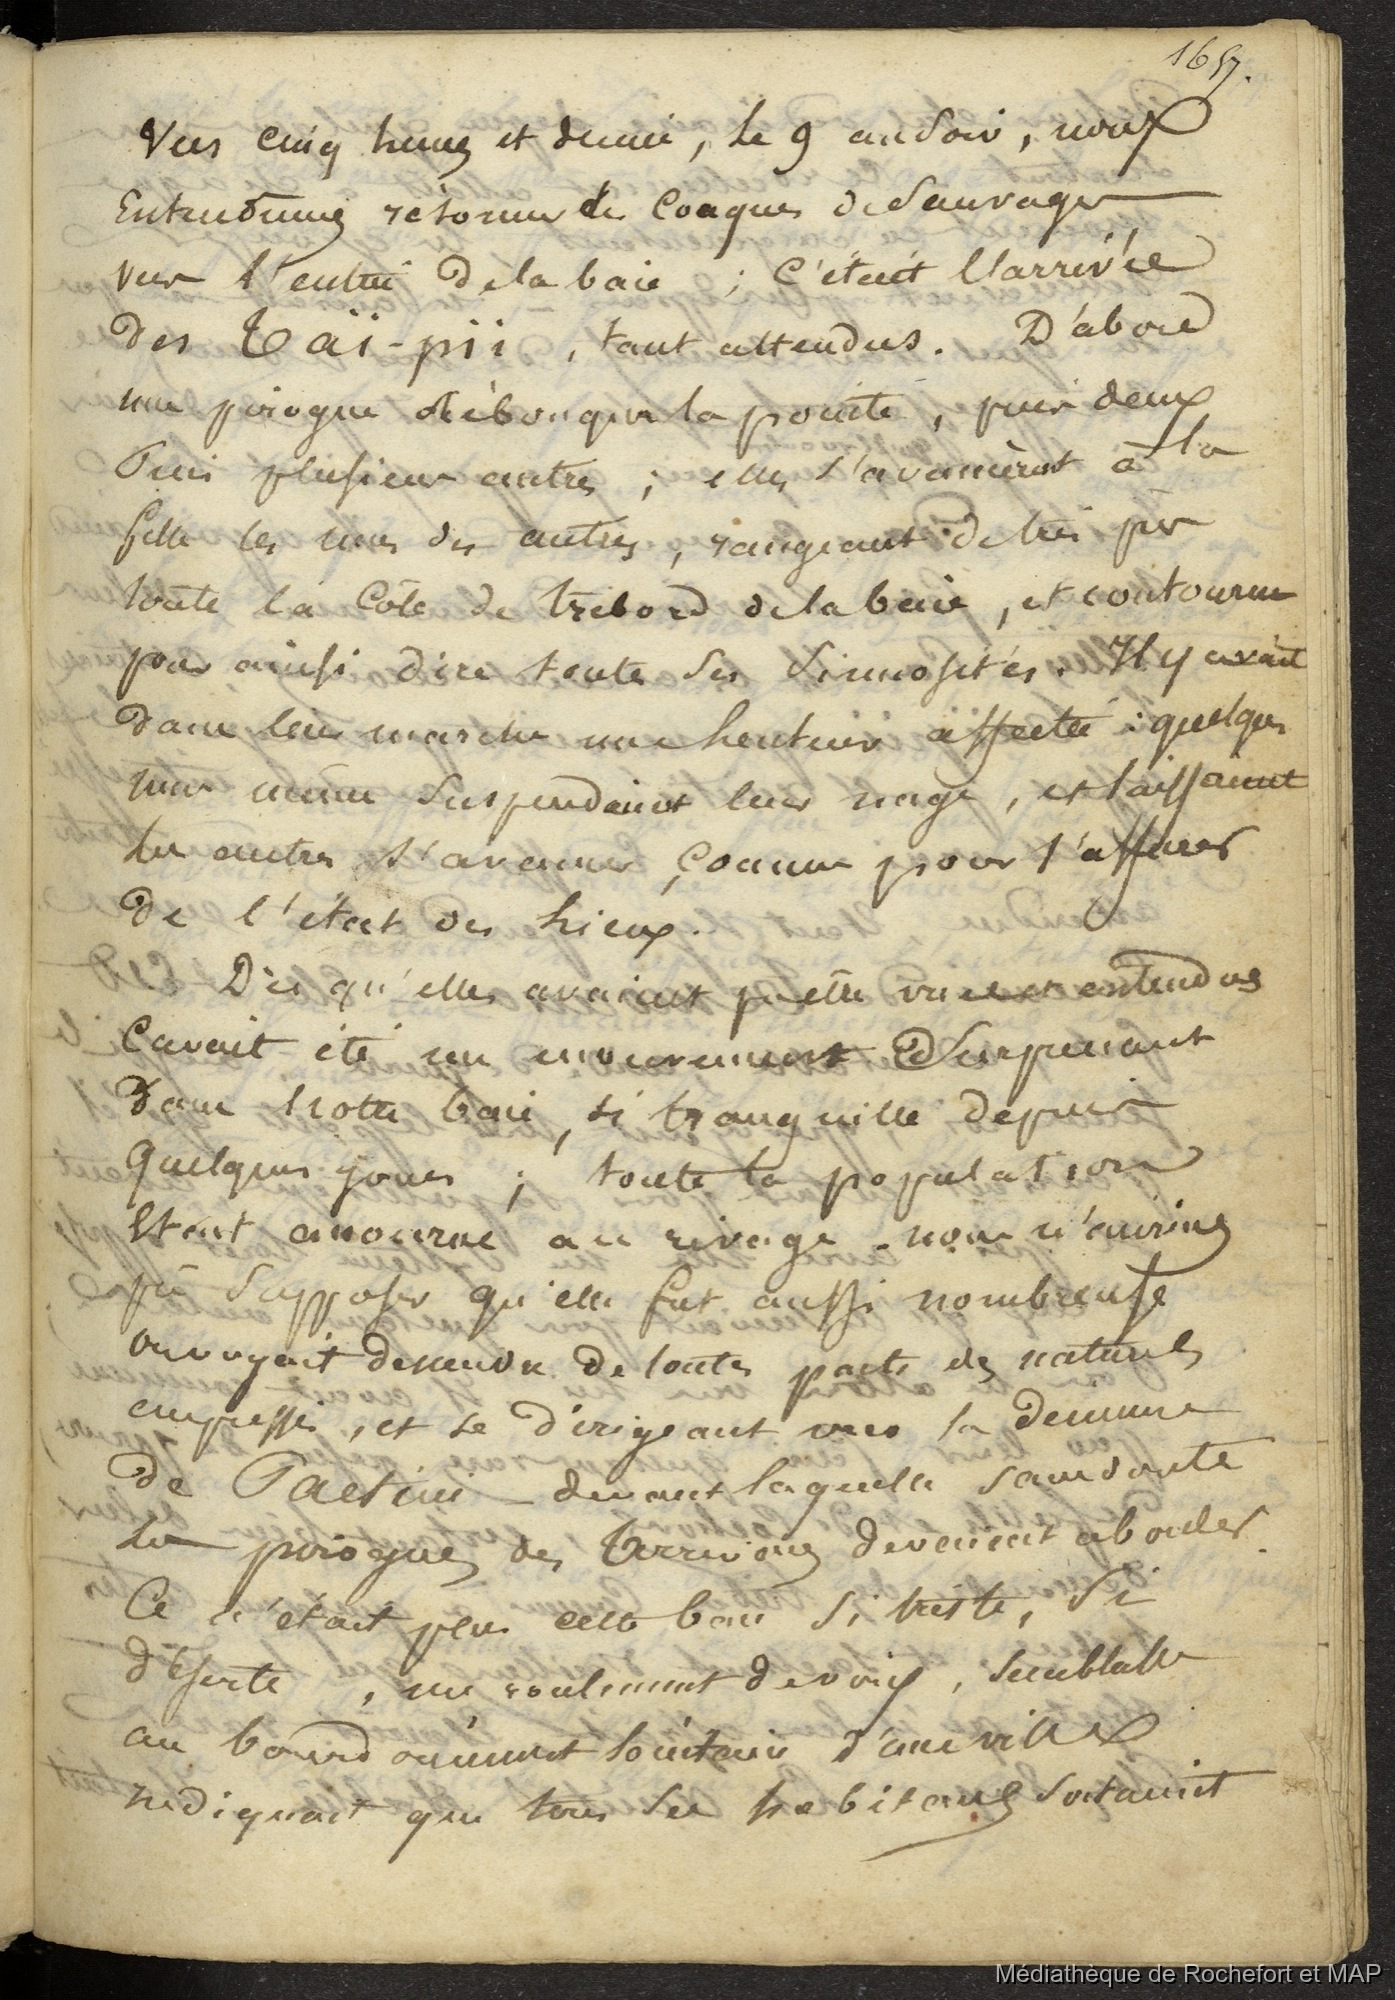 1657.
Vers cinq heures et demie, le 9 au soir, nous
Entendimes résonner des Conques de Sauvages
vers l'entrée de la baie ; C'était l'arrivée
des Taïi-pii, tant attendus. D'abord
une pirogue débouqua la pointe, puis deux
Puis plusieurs autres ; elles s'avancèrent à la
file les unes des autres, rangeant de très près
toute la Côte de tribord de la baie, et contournant
pour ainsi dire toutes ses sinuosités. Il y avait
dans leur marche une lenteur affectée : quelques
unes même suspendaient leur nage, et laissaient
les autres s'avancer, comme pour s'assurer
de l'état des lieux.
Dès qu'elles avaient pu être vues et entendues
C'avait été un mouvement Surprenant
Dans notre baie, si tranquille depuis
Quelques jours ; toute la population
Etait accourue au rivage. nous n'aurions
pu supposer qu'elle fut aussi nombreuse
on voyait descendre de toutes parts des naturels
empressés, et se dirigeant vers la demeure
De Paetini - devant laquelle sans doute
les pirogues des Arrivans devaient aborder.
Ce n'était plus cette baie si triste, si
déserte, un roulement de voix, semblable
au bourdonnement lointain d'une ville
indiquait que tous ses habitans sortaient
Médiathèque de Rochefort et MAP